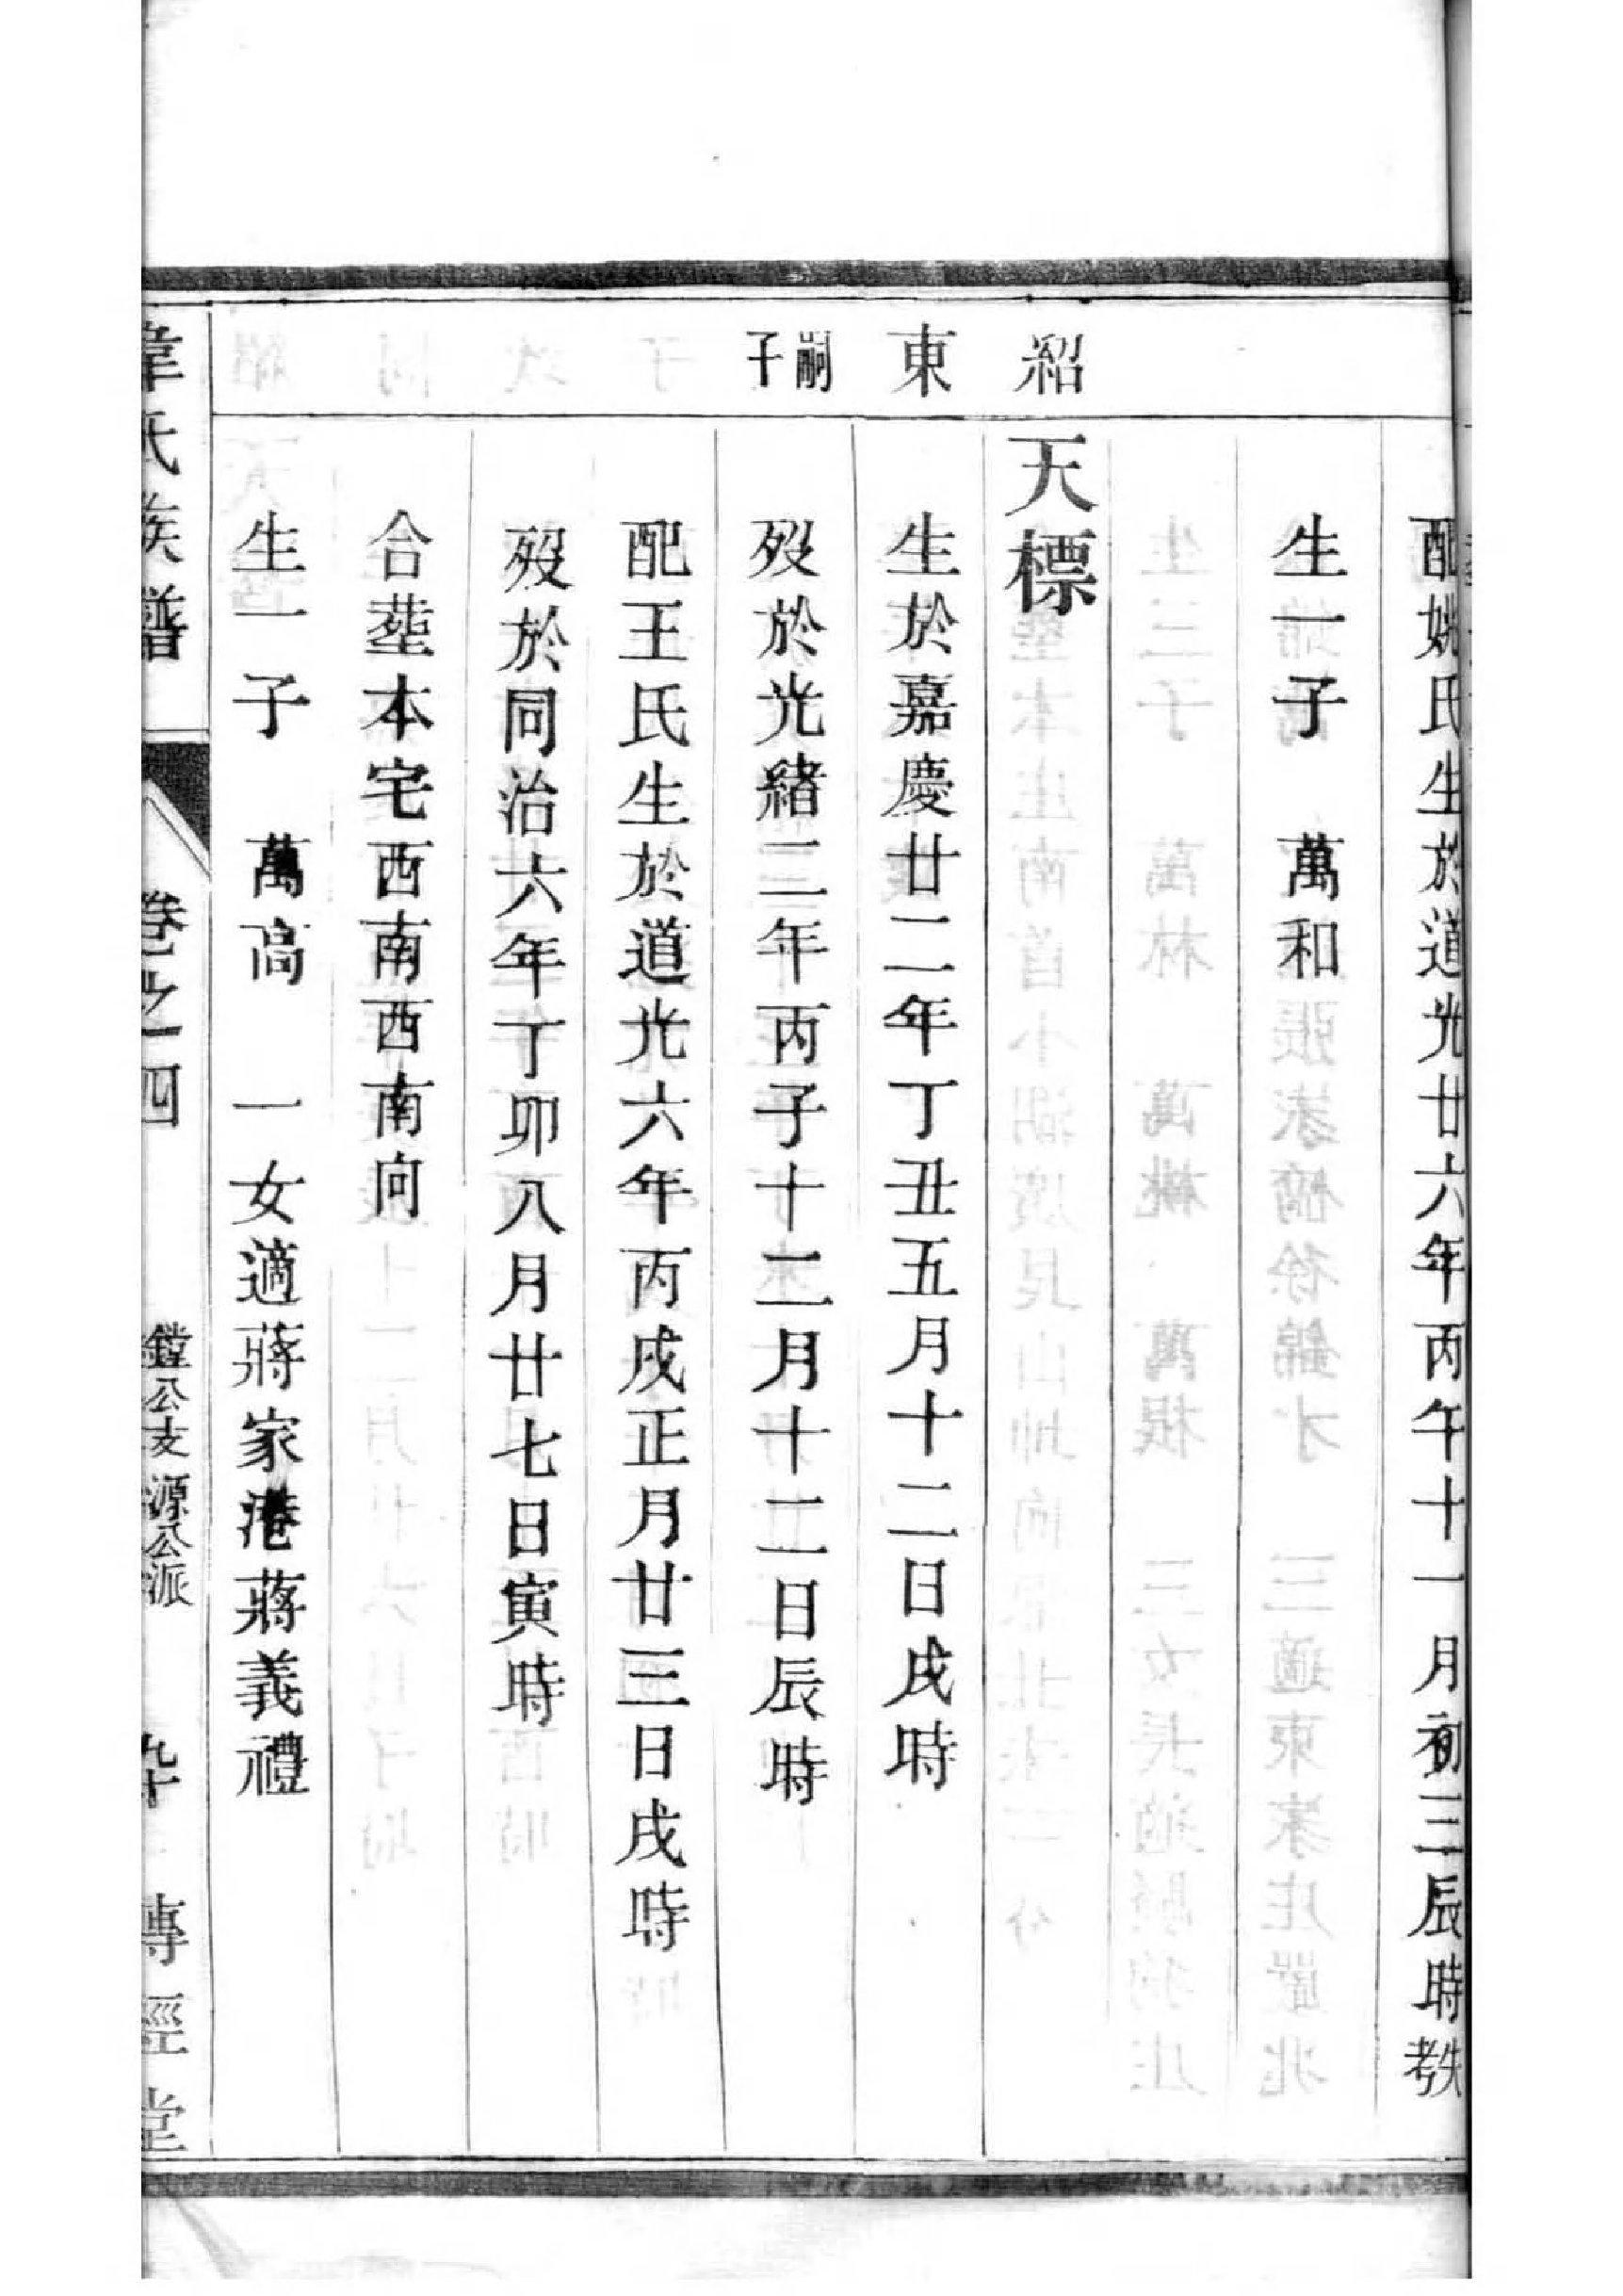 配姚氏生於道光廿六年丙午十一月初三辰時失考
生一子　萬和
紹東嗣子
天標
生於嘉慶廿二年丁丑五月十二日戌時
歿於光緒二年丙子十二月十二日辰時
配王氏生於道光六年丙戌正月廿三日戌時
歿於同治六年丁卯八月廿七日寅時
合塟本宅西南西南向
生一子　萬高　一女適蔣家港蔣義禮
韋氏族譜　卷之四　鏜公支源公派　傳經堂